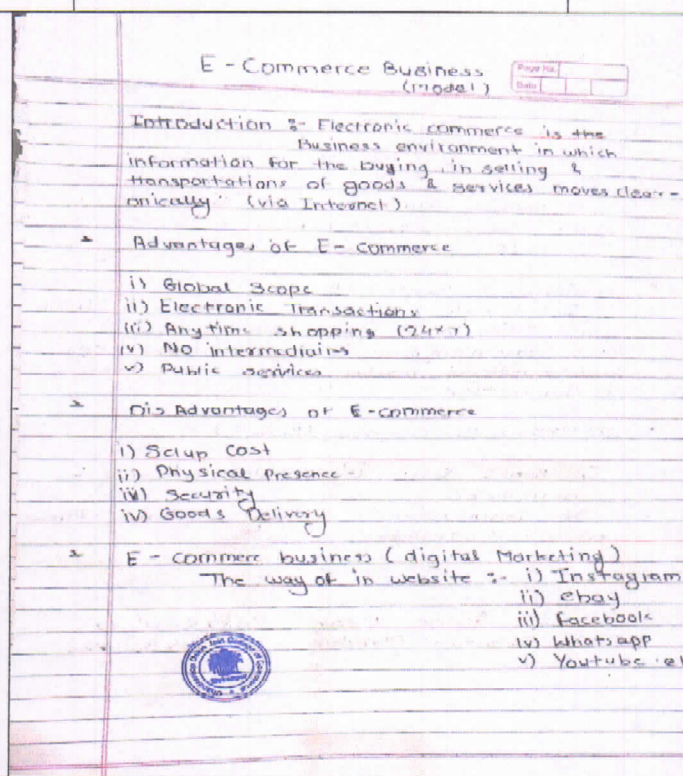 E - Commerce Business
(Model)
Page No.
Date
Introduction :- Electronic commerce is the
Business environment in which
information for the buying, in selling &
transportations of goods & services moves clear-
onically (via Internet)
* Advantages of E - Commerce
i) Global Scope
ii) Electronic Transactions
iii) Anytime shopping (24×7)
iv) No intermediairs
v) Public services
* Dis Advantages of E-commerce
i) Setup Cost
ii) Physical Presence
iii) Security
iv) Goods Delivery
* E - commerc business (digital Marketing)
The way of in website :- i) Instagram
ii) ebay
iii) facebook
iv) Whatsapp
v) Youtube